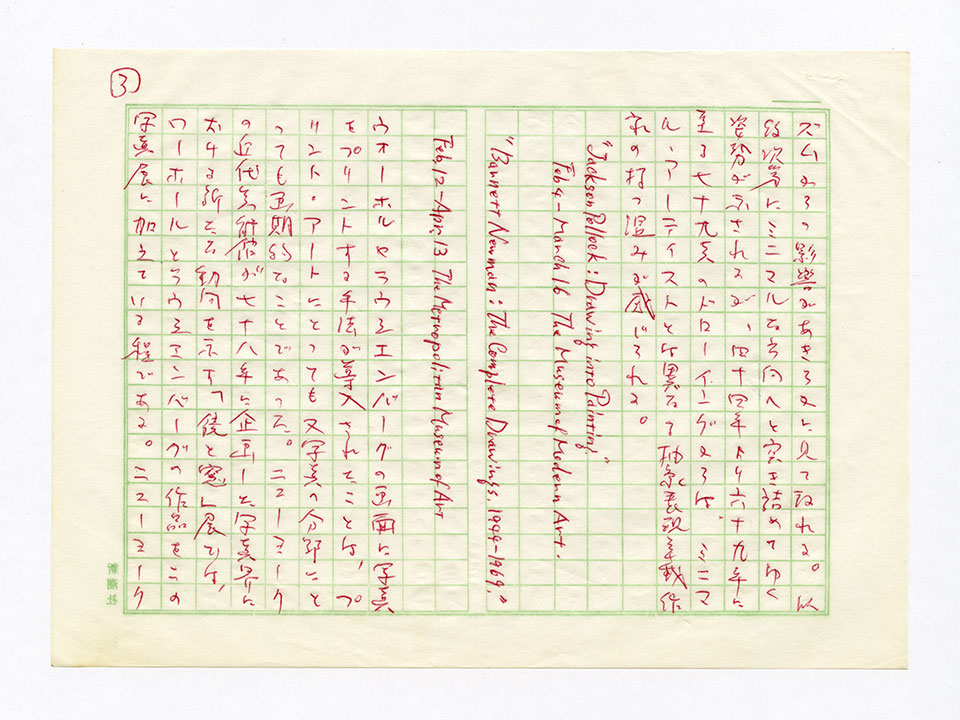 ③
ズムからの影響があきらかに見て取れる。以
後次第にミニマルな方向へと突き詰めてゆく
姿勢が示されるが、四十四年より六十九年に
至る七十九点のドローイングからは、ミニマ
ル・アーティストとは異なって抽象表現主義作
家の持つ温みが感じられる。
"Jackson Pollock: Drawing into Painting"
Feb 4 - March 16 The Museum of Modern Art.
"Barnett Newman: The Complete Drawings, 1944-1969."
Feb, 12 - Apr, 13 The Metropolitan Museum of Art
ウォーホルやラウシェンバーグの画面に写真
をプリントする手法が導入されたことは、プ
リント・アートにとっても又写真の分野にと
っても画期的なことであった。ニューヨーク
の近代美術館が七十八年に企画した写真界に
おける新たな動向を示す「鏡と窓」展では、
ワーホールとラウシェンバーグの作品をこの
写真展に加えている程である。ニューヨーク
新潮社